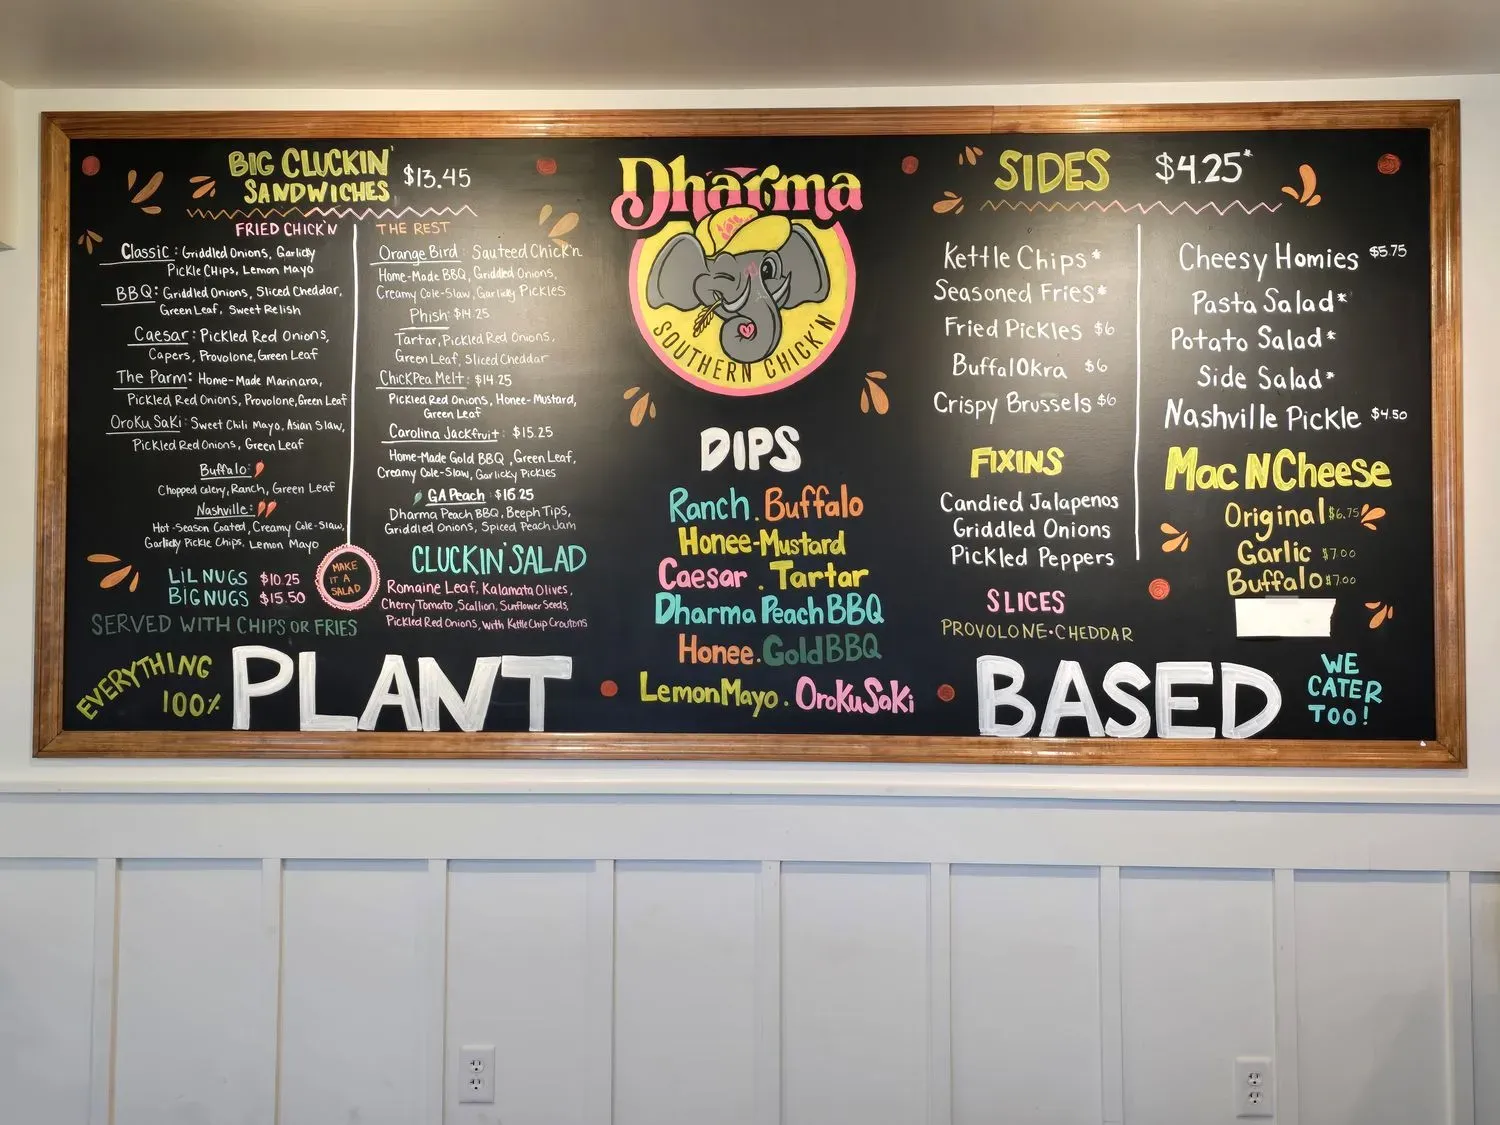 BIG CLUCKIN' SANDWICHES $13.45
FRIED CHICK'N
Classic: Griddled Onions, Garlicky
Pickle Chips, Lemon Mayo
BBQ: Griddled Onions, Sliced Cheddar,
Green Leaf, Sweet Relish
Caesar: Pickled Red Onions,
Capers, Provolone, Green Leaf
The Parm: Home-Made Marinara,
Pickled Red Onions, Provolone, Green Leaf
OroKu SaKi: Sweet Chili Mayo, Asian Slaw,
Pickled Red Onions, Green Leaf
Buffalo:
Chopped Celery, Ranch, Green Leaf
Nashville:
Hot-Season Coated, Creamy Cole-Slaw,
Garlicky Pickle Chips, Lemon Mayo
LIL NUGS $10.25
BIG NUGS $15.50
SERVED WITH CHIPS OR FRIES
MAKE
IT A
SALAD
THE REST
Orange Bird: Sauteed Chick'n
Home-Made BBQ, Griddled Onions,
Creamy Cole-Slaw, Garlicky Pickles
Phish: $14.25
Tartar, Pickled Red Onions,
Green Leaf, Sliced Cheddar
ChickPea Melt: $14.25
Pickled Red Onions, Honee-Mustard,
Green Leaf
Carolina Jackfruit: $15.25
Home-Made Gold BBQ, Green Leaf,
Creamy Cole-Slaw, Garlicky Pickles
GA Peach: $16.25
Dharma Peach BBQ, Beeph Tips,
Griddled Onions, Spiced Peach Jam
CLUCKIN' SALAD
Romaine Leaf, Kalamata Olives,
Cherry Tomato, Scallion, Sunflower Seeds,
Pickled Red Onions, with Kettle Chip Croutons
Dharma
SOUTHERN CHICK'N
DIPS
Ranch . Buffalo
Honee-Mustard
Caesar . Tartar
Dharma Peach BBQ
Honee . Gold BBQ
Lemon Mayo . OroKu SaKi
SIDES $4.25*
Kettle Chips*
Seasoned Fries*
Fried Pickles $6
BuffalOkra $6
Crispy Brussels $6
FIXINS
Candied Jalapenos
Griddled Onions
Pickled Peppers
SLICES
PROVOLONE • CHEDDAR
Cheesy Homies $5.75
Pasta Salad*
Potato Salad*
Side Salad*
Nashville Pickle $4.50
Mac N Cheese
Original $6.75
Garlic $7.00
Buffalo $7.00
EVERYTHING
100%
PLANT BASED
WE
CATER
TOO!